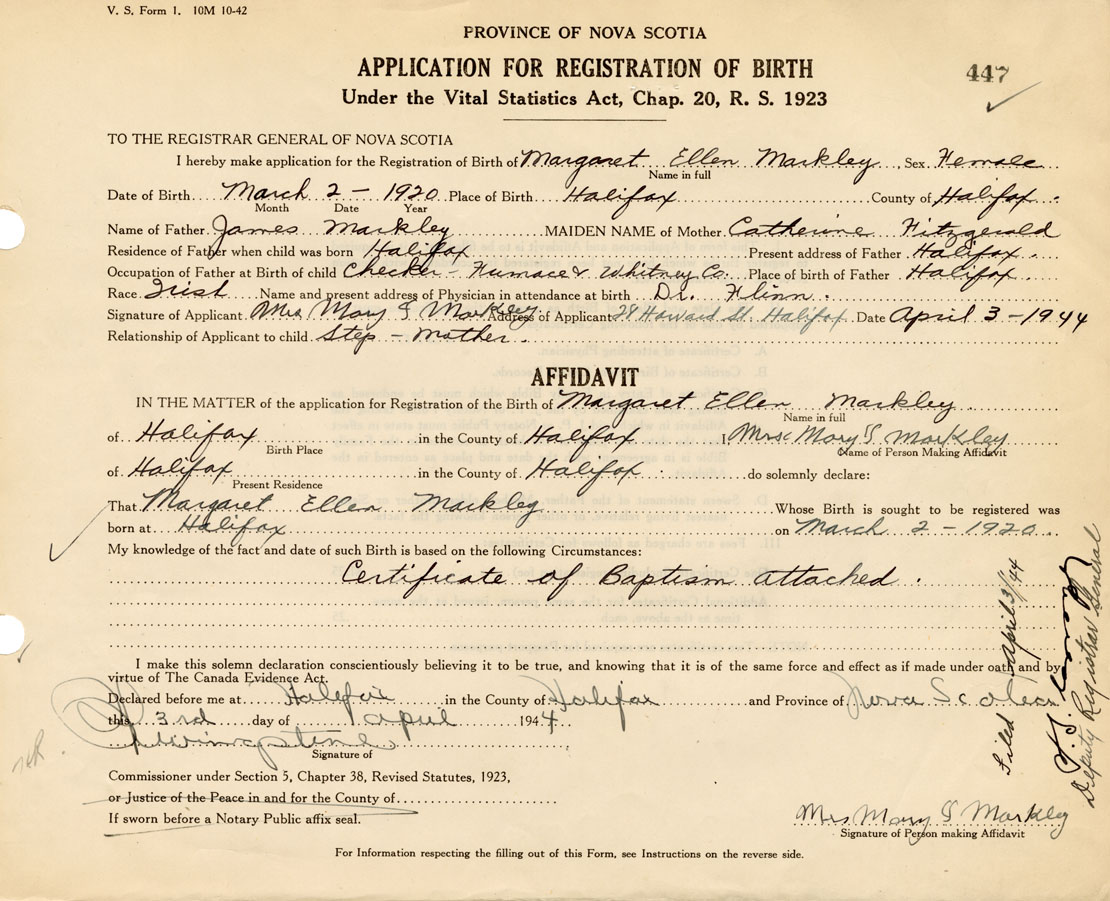 V. S. Form 1. 10M 10-42
PROVINCE OF NOVA SCOTIA
APPLICATION FOR REGISTRATION OF BIRTH
447
Under the Vital Statistics Act, Chap. 20, R. S. 1923
TO THE REGISTRAR GENERAL OF NOVA SCOTIA
I hereby make application for the Registration of Birth of Margaret Ellen Markley, Sex Female
Name in full
Date of Birth March 2 - 1920 Place of Birth Halifax County of Halifax
Month Date Year
Name of Father James Markley MAIDEN NAME of Mother Catherine Fitzgerald
Residence of Father when child was born Halifax Present address of Father Halifax
Occupation of Father at Birth of child Checker - Furnace & Whitney Co. Place of birth of Father Halifax
Race Irish Name and present address of Physician in attendance at birth Dr. Flinn.
Signature of Applicant Mrs Mary S Markley Address of Applicant 28 Howard St. Halifax Date April 3 - 1944
Relationship of Applicant to child Step - Mother.
AFFIDAVIT
IN THE MATTER of the application for Registration of the Birth of Margaret Ellen Markley
Name in full
of Halifax in the County of Halifax I Mrs. Mary S Markley
Birth Place Name of Person Making Affidavit
of Halifax in the County of Halifax do solemnly declare:
Present Residence
That Margaret Ellen Markley Whose Birth is sought to be registered was
born at Halifax on March 2 - 1920
My knowledge of the fact and date of such Birth is based on the following Circumstances:
Certificate of Baptism attached.
I make this solemn declaration conscientiously believing it to be true, and knowing that it is of the same force and effect as if made under oath and by
virtue of The Canada Evidence Act.
Declared before me at Halifax in the County of Halifax and Province of Nova Scotia
this 3rd day of April 1944
Signature of
Commissioner under Section 5, Chapter 38, Revised Statutes, 1923,
or Justice of the Peace in and for the County of
If sworn before a Notary Public affix seal.
Mrs Mary S Markley
Signature of Person making Affidavit
For Information respecting the filling out of this Form, see Instructions on the reverse side.
Filed April 3/44
Deputy Registrar General